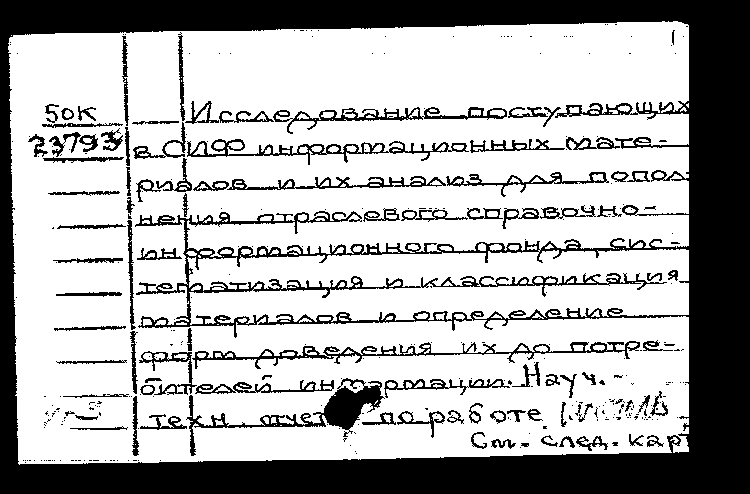 50К Исследование поступающих
23793 в СИФ информационных мате-
риалов и их анализ для попол-
нения отраслевого справочно-
информационного фонда, сис-
тематизация и классификация
материалов и определение
форм доведения их до потре-
бителей информации. Науч.-
техн. отчет по работе
См. след. карт